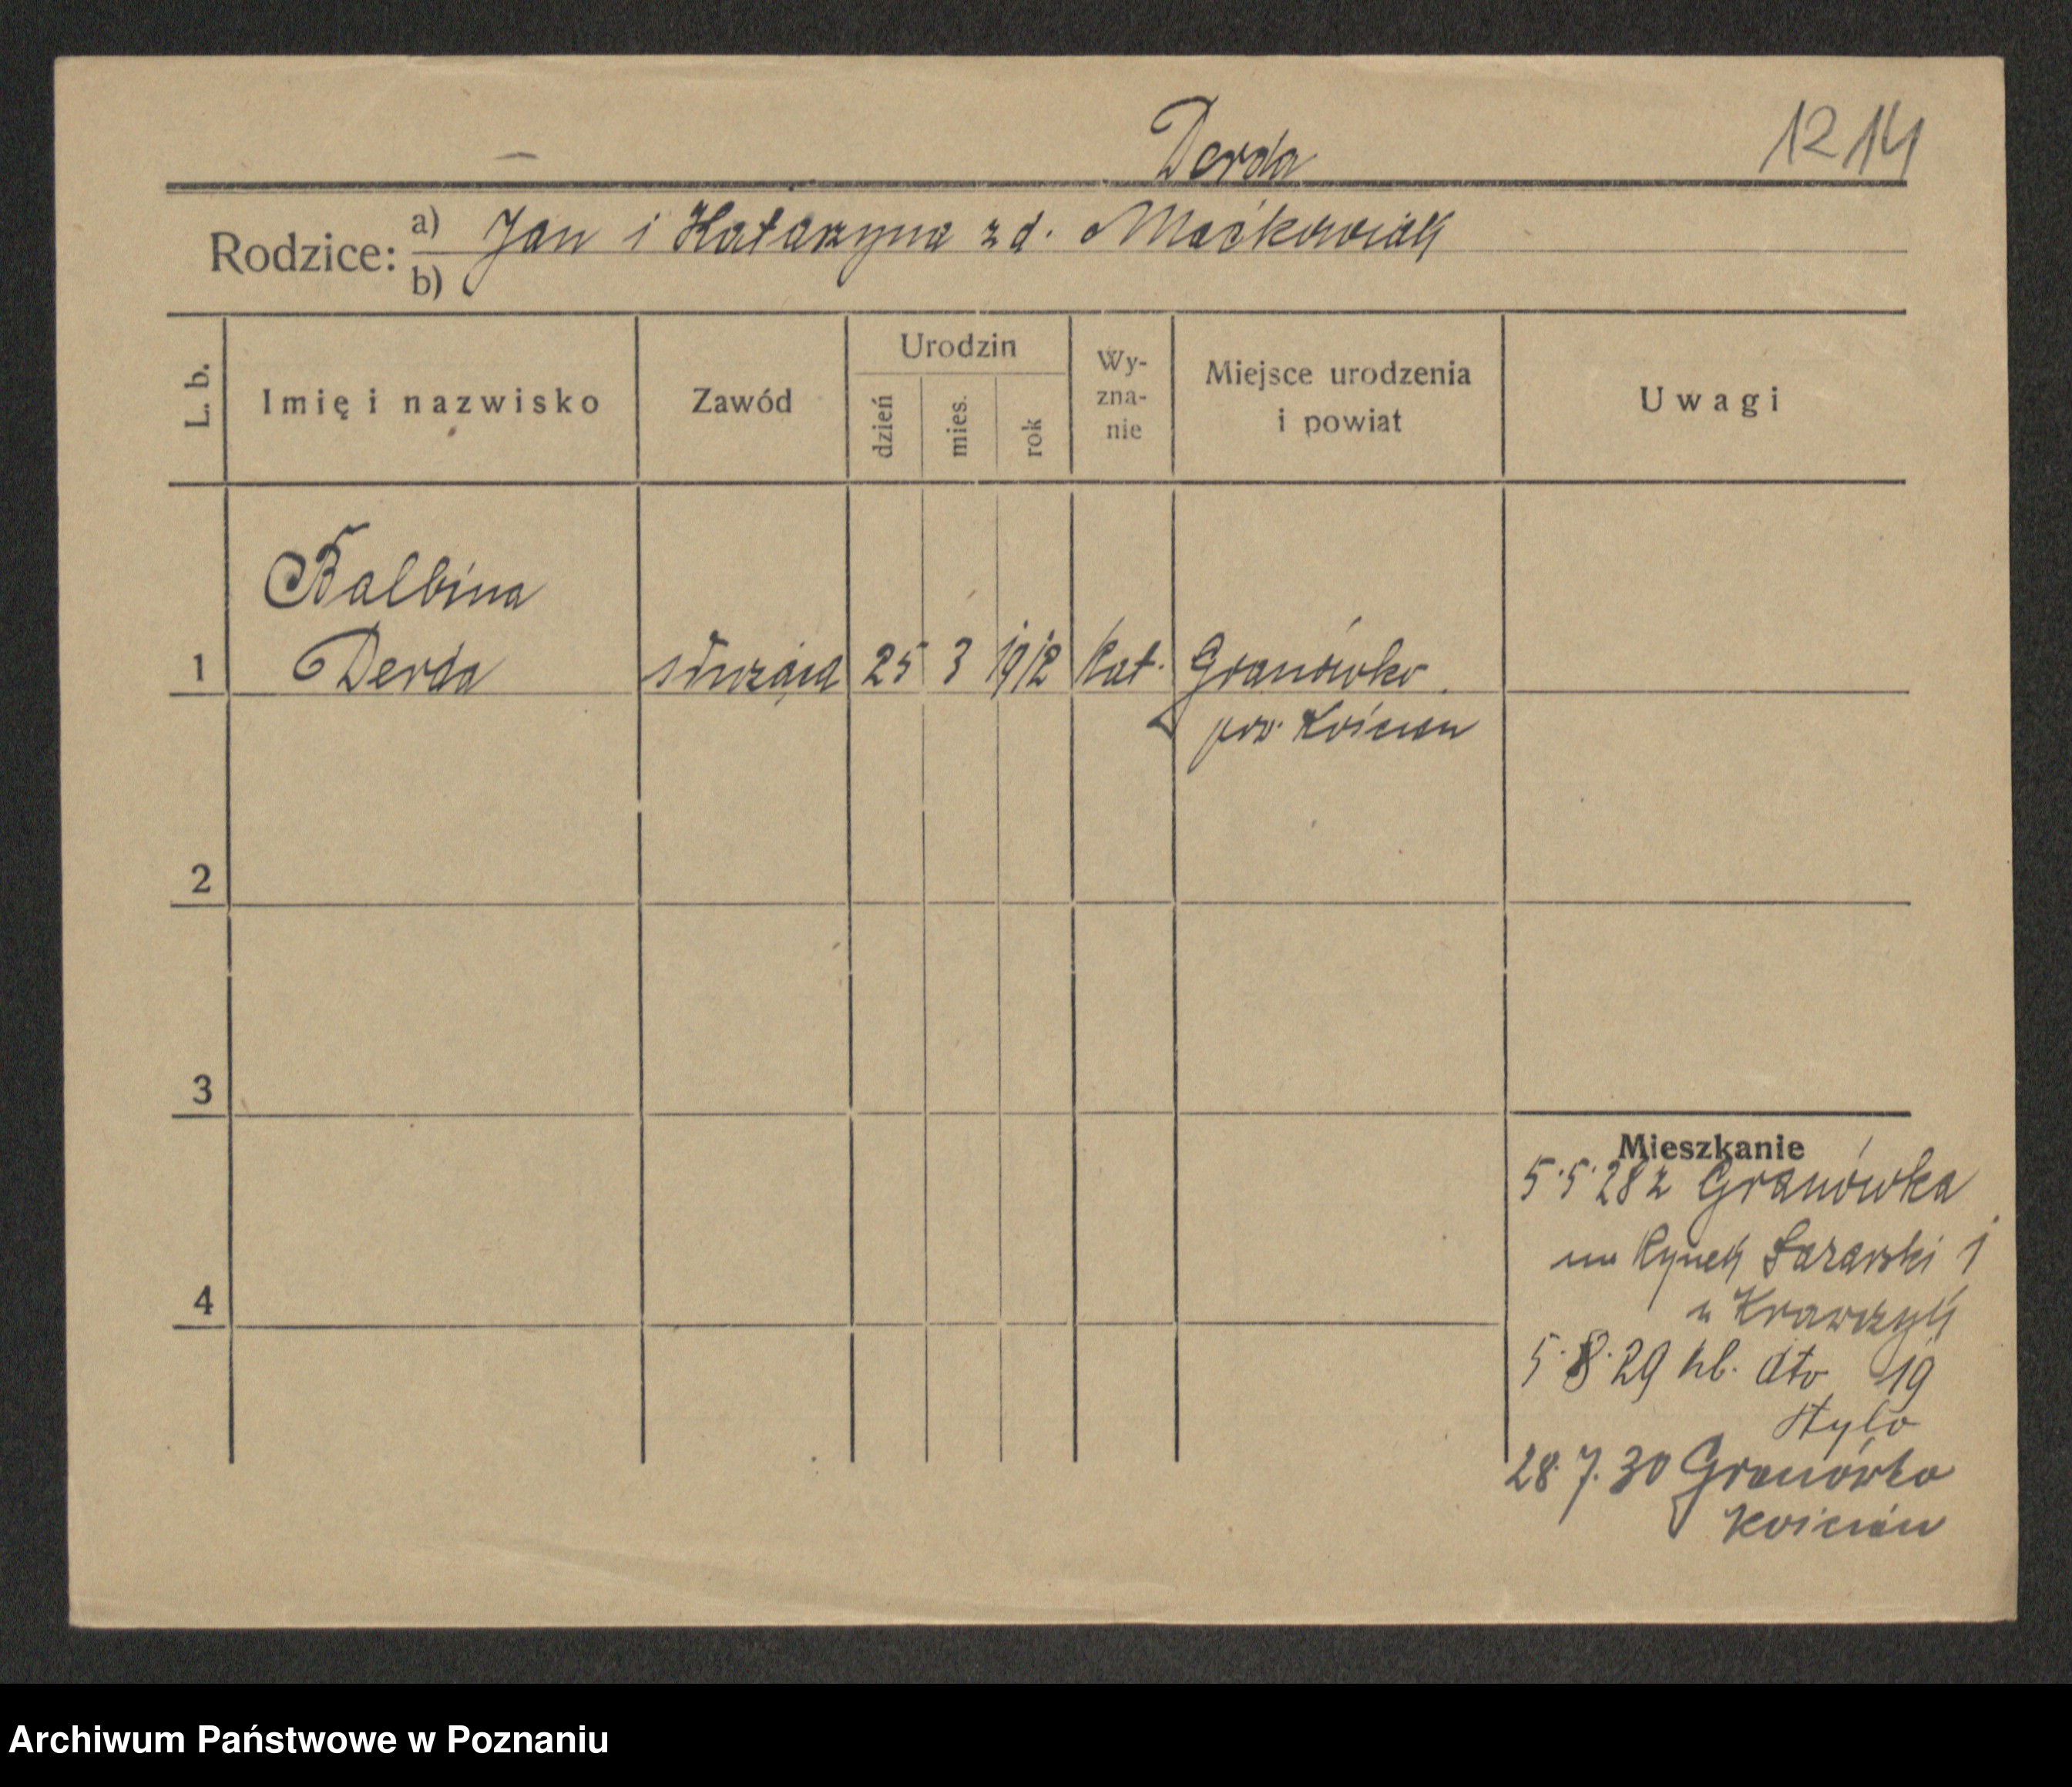 Derda
1214
Rodzice: a) Jan i Katarzyna z d. Maćkowiak
b)
L. b.
Imię i nazwisko
Zawód
Urodzin
dzień
mies.
rok
Wy-
zna-
nie
Miejsce urodzenia
i powiat
Uwagi
Balbina
1 Derda służąca 25 3 1912 kat. Granówko
pow. Kościan
2
3
4
Mieszkanie
5.5.28 z Granówka
na Rynek Łazarski 1
u Krawczyk
5.8.29 hb. dto 19
Stylo
28.7.30 Granówko
Kościan
Archiwum Państwowe w Poznaniu